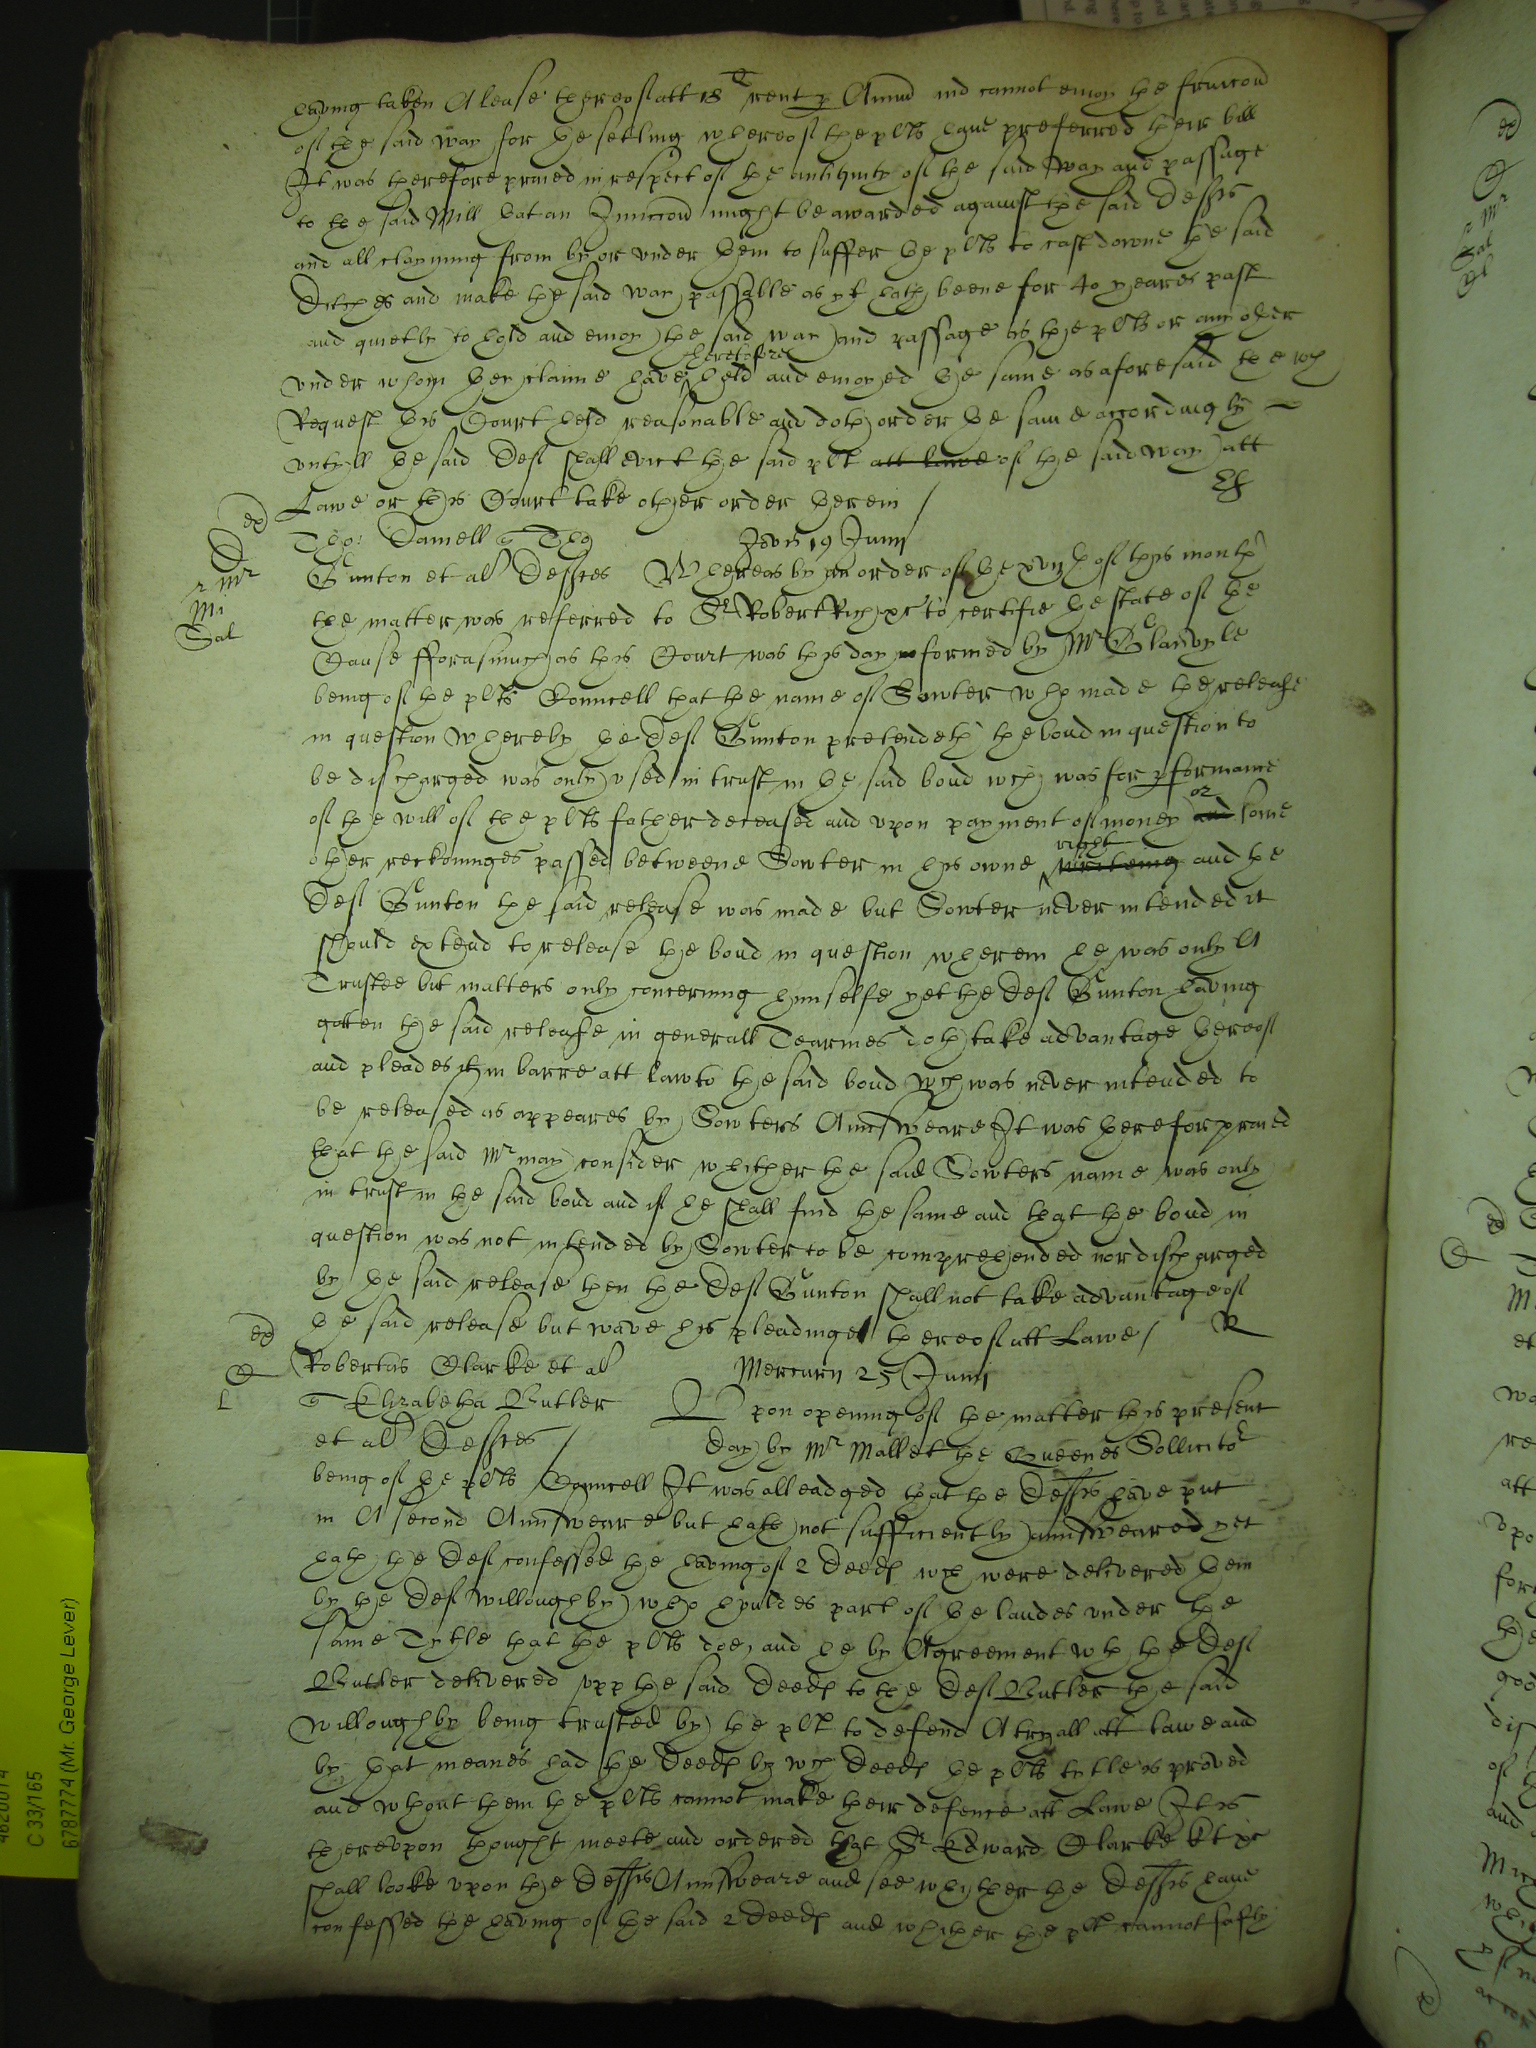 having taken A lease thereof att 18 rent p Annu and cannot enioy the fruicon
of the said way for the setling whereof the plts have preferred their bill
It was therefore praied in respect of the antiquity of the said way and passage
to the said Mill that an Iniuccon might be awarded against the said Defts
and all clayming from by or under them to suffer the plts to cast downe the said
Ditches and make the said way passable as yt hath beene for 40 yeares past
and quietly to hold and enioy the said way and passage as the plts or any other
under whom they claime have heretofore held and enioyed the same as aforesaid the wch
Request this Court held reasonable and doth order the same accordingly
untyll the said Deft shall evict the said plt att lawe of the said way att
Lawe or this Court take other order therein /
Tho: Damell q Tho
Jovis 19 Junii
Gunton et al Deftes Whereas by an order of the xvijth of this month
the matter was referred to Sr Robert Rich xc to certifie the state of the
Cause fforasmuch as this Court was this day informed by Mr Glanvyle
being of the plts Councell that the name of Sowter who made the release
in question whereby the Deft Gunton pretendeth the bond in question to
be discharged was only used in trust in the said bond wch was for pformance
of the will of the plts father deceased and upon payment of money and or some
other reckoninges passed betweene Sowter in his owne right and the
Deft Gunton the said release was made but Sowter never intended it
should extend to release the bond in question wherein he was only A
Trustee but matters only concerning himselfe yet the Deft Gunton having
gotten the said release in generall Tearmes doth take advantage thereof
and pleades yt in barre att law to the said bond wch was never intended to
be released as appeares by Sowters Annsweare It was therefor praied
that the said Mr may consider whither the said Sowters name was only
in trust in the said bond and if he shall find the same and that the bond in
question was not intended by Sowter to be comprehended nor discharged
by the said release then the Deft Gunton shall not take advantage of
the said release but wave his pleadinge thereof att Lawe / R
Robertus Clarke et al
Mercurii 25 Junii
q Elizabetha Butler
Upon opening of the matter this present
et al Deftes /
day by Mr Mallet the Queenes Sollicitor
being of the plts Councell It was alleadged that the Defts have put
in A second Annsweare but hath not sufficiently annsweared yet
hath the Deft confessed the having of 2 Deedes wch were delivered them
by the Deft Willoughby who houldes part of the landes under the
same Tytle that the plts doe, and he by Agreement wth the Deft
Butler delivered upp the said Deedes to the Deft Butler the said
Willoughby being trusted by the plt to defend A tryall att lawe and
by that meanes had the Deedes by wch Deedes the plts tytle is proved
and wthout them the plts cannot make their defence att Lawe It is
thereupon thought meete and ordered that Sr Edward Clarke kt xc
shall looke upon the Defts Annsweare and see whyther the Defts have
confessed the having of the said 2 Deedes and whither the plt cannot safly
C 33/165
67877774 (Mr. George Lever)